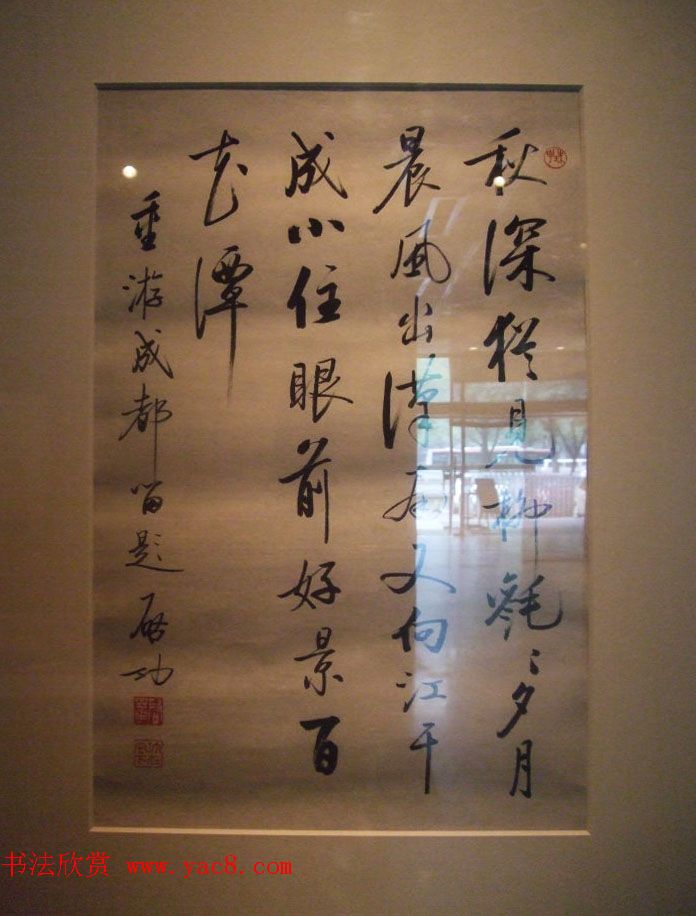 秋深猶見柳毿〻夕月
晨風出漢南又向江干
成小住眼前好景百
花潭
重游成都留題 啓功
书法欣赏 www.yac8.com